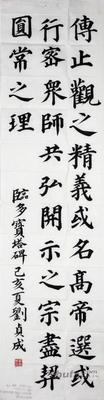 傳止觀之精義或名高帝選或
行密衆師共弘開示之宗盡契
圓常之理
臨多寶塔碑己亥夏劉貞成